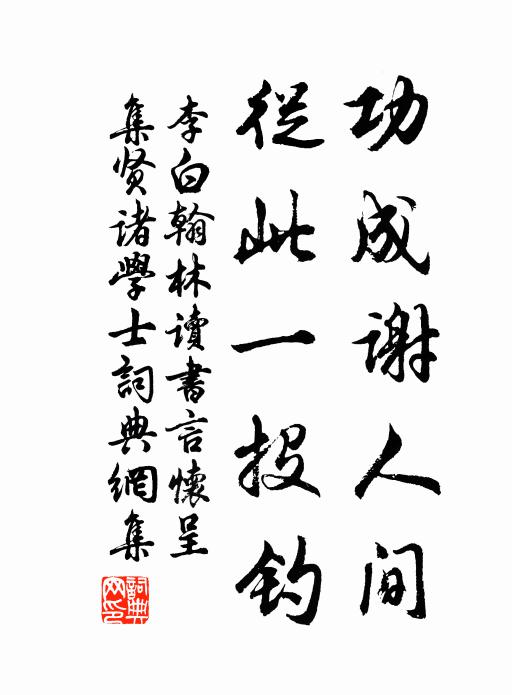 功成謝人间
從此一投钓
李白翰林讀書言懷呈
集贤诸學士詞典網集
詞典网印